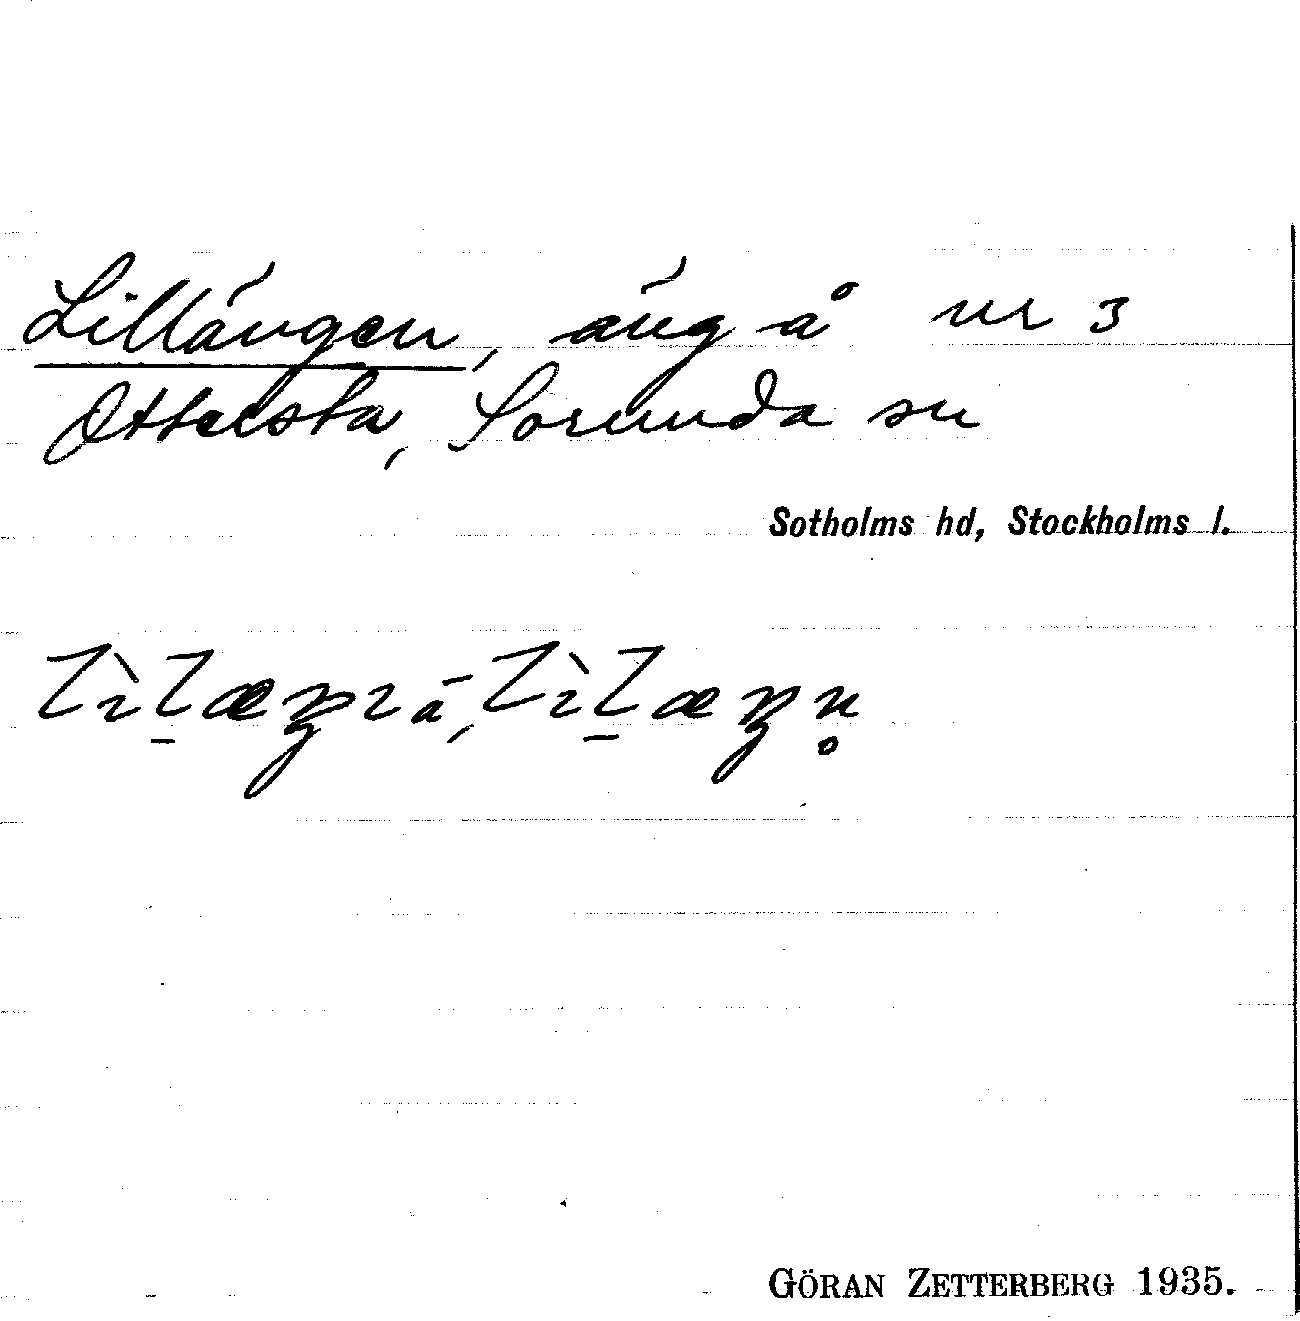 Lillängen, äng å nr 3
Ottersta, Sorunda sn
Sotholms hd, Stockholms l.
GÖRAN ZETTERBERG 1935.